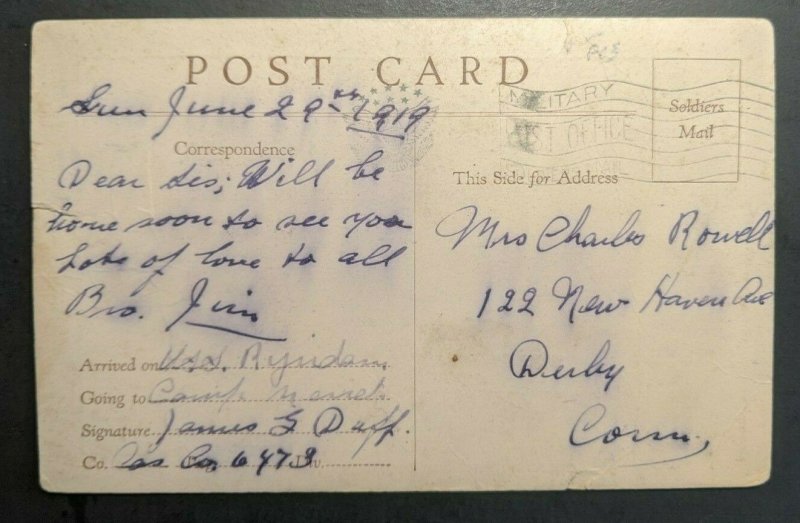 POST CARD
Sun June 29th 1919
MILITARY
POST OFFICE
Soldiers
Mail
Correspondence
This Side for Address
Dear Sis; Will be
home soon to see you
Lots of love to all
Bro. Jim
Mrs Charles Rowell
122 New Haven Ave
Derby
Conn,
Arrived on U.S.S. Ryndam
Going to Camp Merritt
Signature James G Duff.
Co. Cas Co, 6473 Div.